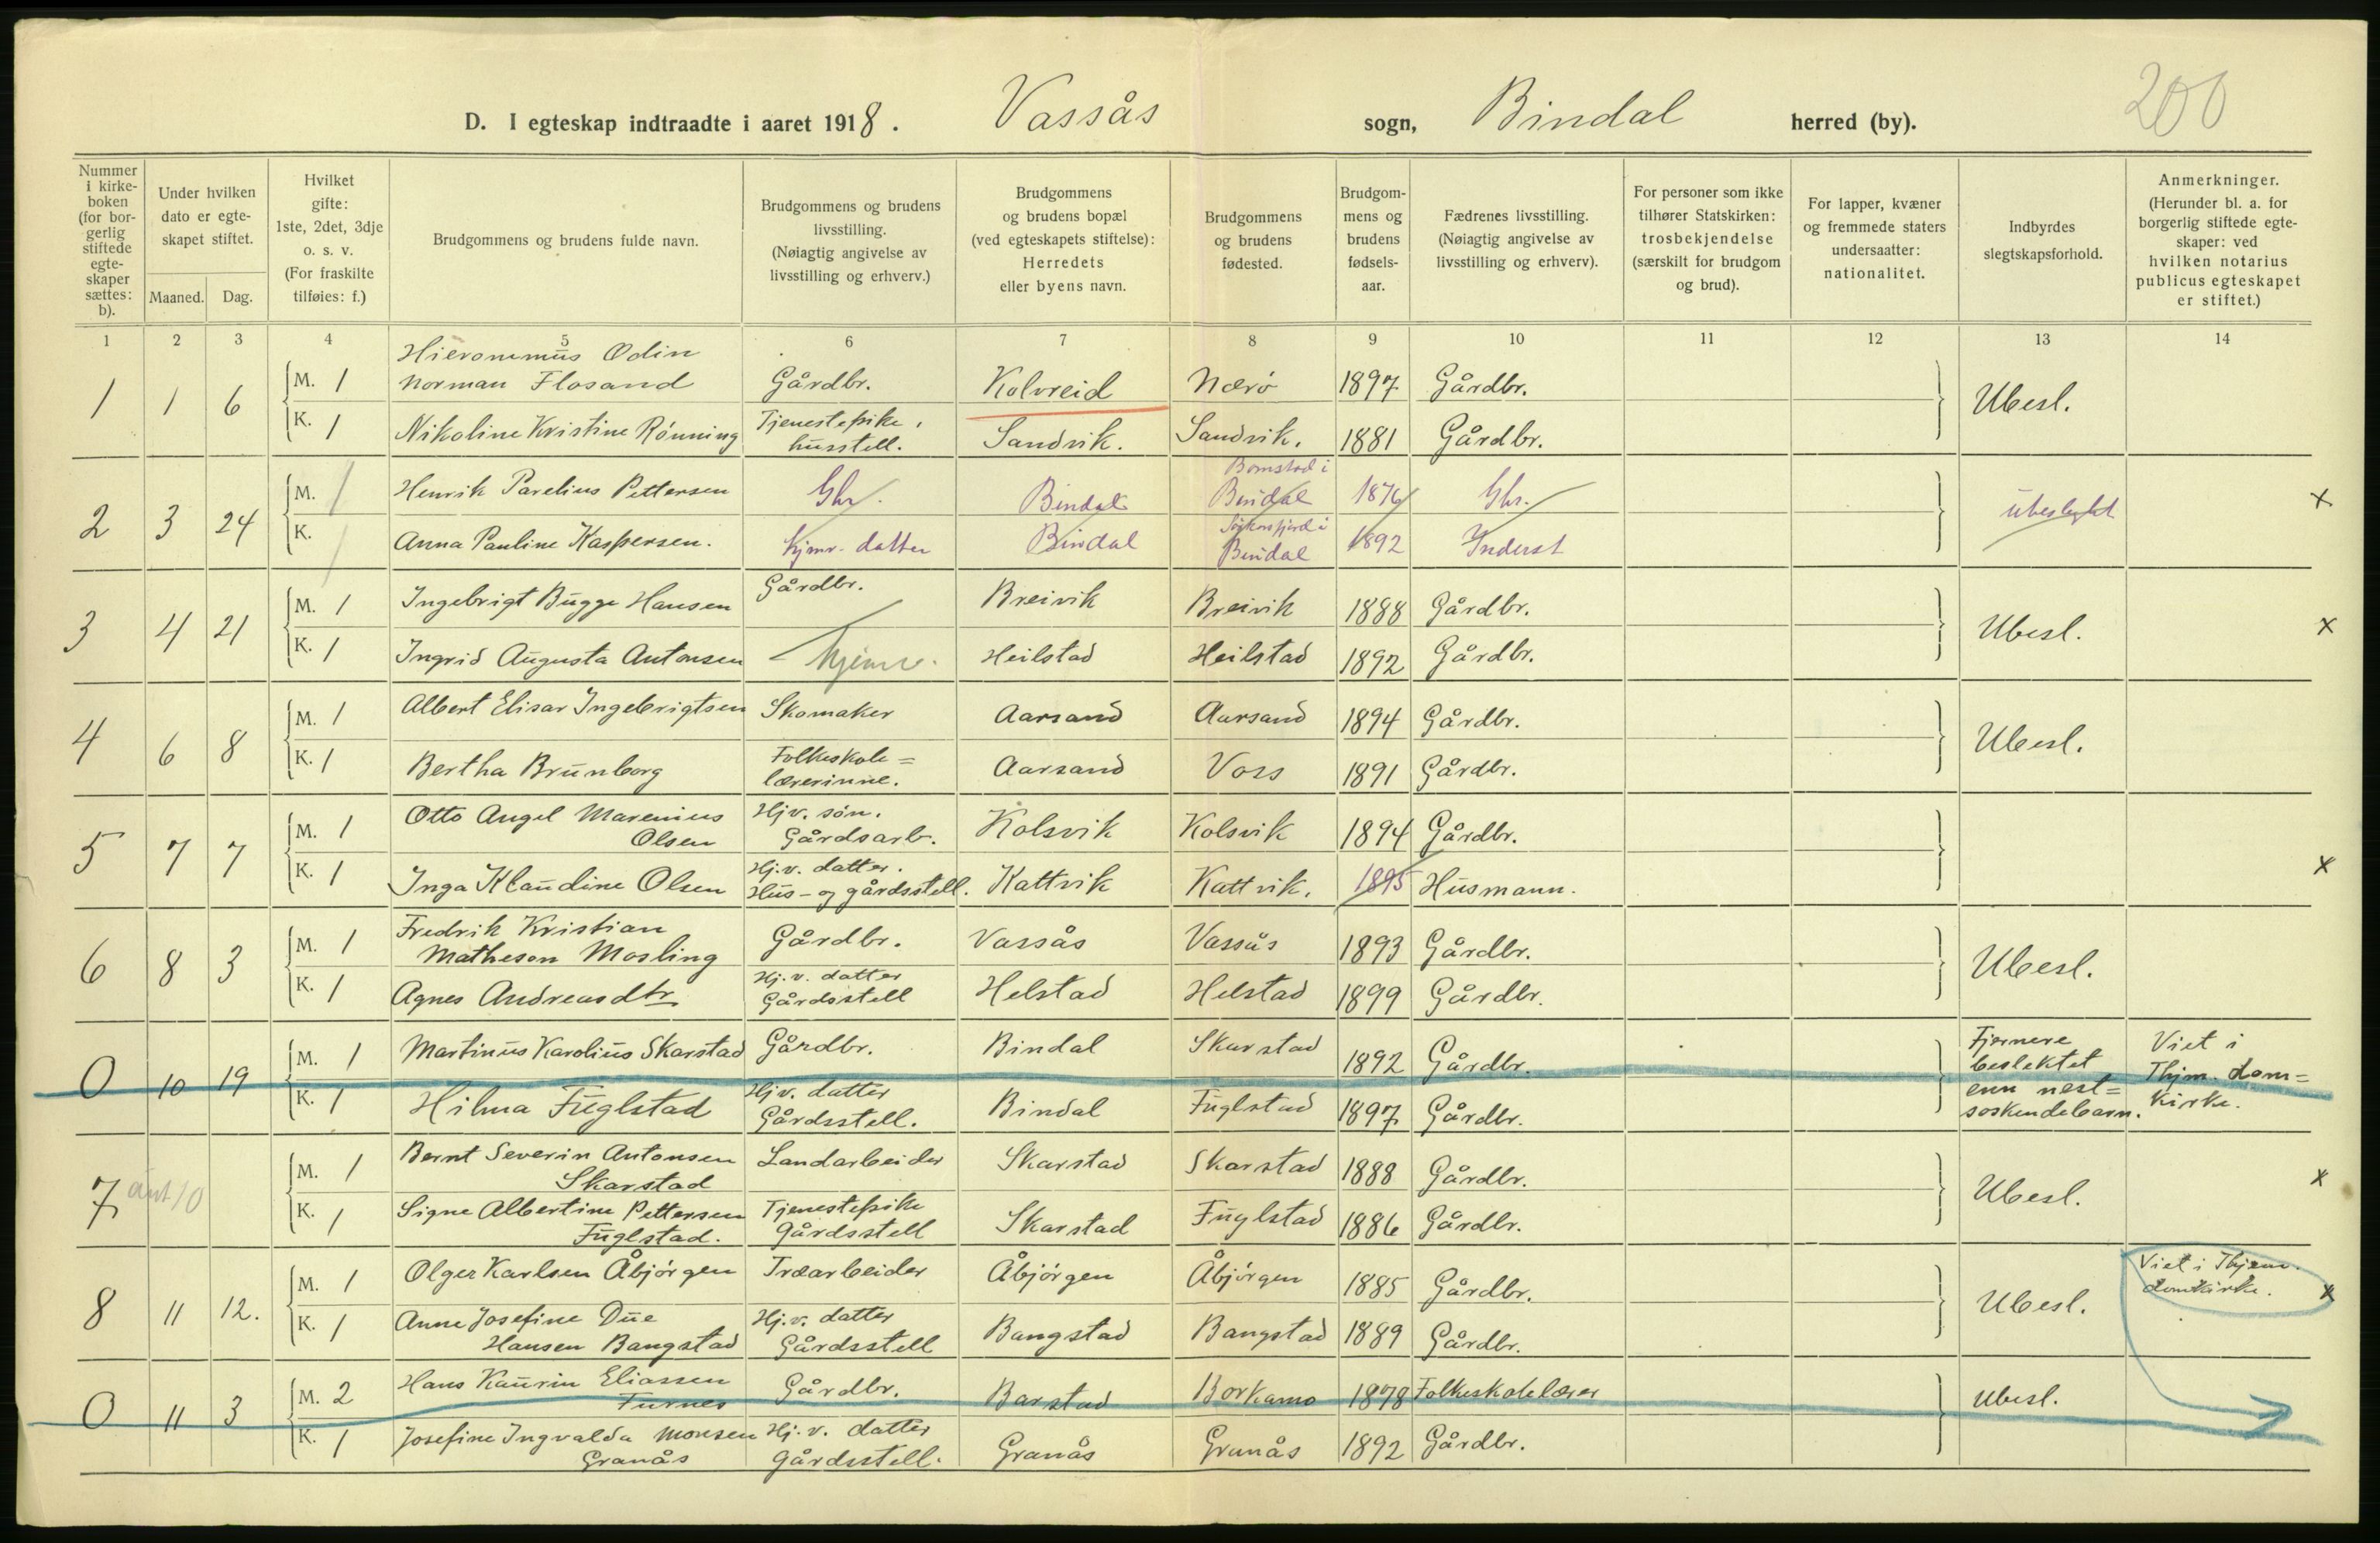 200
D. I egteskap indtraadte i aaret 1918. Vassås sogn, Bindal herred (by).
Nummer i kirke-boken (for bor-gerlig stiftede egte-skaper sættes: b).
Under hvilken dato er egte-skapet stiftet.
Maaned. Dag.
Hvilket gifte: 1ste, 2det, 3dje o. s. v. (For fraskilte tilføies: f.)
Brudgommens og brudens fulde navn.
Brudgommens og brudens livsstilling. (Nøiagtig angivelse av livsstilling og erhverv.)
Brudgommens og brudens bopæl (ved egteskapets stiftelse): Herredets eller byens navn.
Brudgommens og brudens fødested.
Brudgom-mens og brudens fødsels-aar.
Fædrenes livsstilling. (Nøiagtig angivelse av livsstilling og erhverv).
For personer som ikke tilhører Statskirken: trosbekjendelse (særskilt for brudgom og brud).
For lapper, kvæner og fremmede staters undersaatter: nationalitet.
Indbyrdes slegtskapsforhold.
Anmerkninger. (Herunder bl. a. for borgerlig stiftede egte-skaper: ved hvilken notarius publicus egteskapet er stiftet.)
1 2 3 4 5 6 7 8 9 10 11 12 13 14
1 1 6 M. 1 Hieronimus Odin Norman Flosand Gårdbr. Kolvreid Nærö 1897 Gårdbr. Ubesl.
K. 1 Nikoline Kristine Rönning Tjenestepike, husstell. Sandvik. Sandvik. 1881 Gårdbr.
2 3 24 M. 1 Henrik Parelius Pettersen Gbr. Bindal Bindal 1876 Gbr. ubeslegtet x
K. 1 Anna Pauline Kaspersen. hjmv. datter Bindal Bindal 1892 Inderst
3 4 21 M. 1 Ingebrigt Bugge Hansen Gårdbr. Breivik Breivik 1888 Gårdbr. Ubesl. x
K. 1 Ingrid Augusta Antonsen hjemv. Heilstad Heilstad 1892 Gårdbr.
4 6 8 M. 1 Albert Elisar Ingebrigtsen Skomaker Aarsand Aarsand 1894 Gårdbr. Ubesl.
K. 1 Bertha Brunborg Folkeskole=lærerinne. Aarsand Voss 1891 Gårdbr.
5 7 7 M. 1 Otto Angel Marenius Olsen Hjv. sön. Gårdsarb. Kolsvik Kolsvik 1894 Gårdbr. x
K. 1 Inga Klaudine Olsen Hj.v. datter. Hus- og gårdsstell. Kattvik Kattvik. 1895 Husmann.
6 8 3 M. 1 Fredrik Kristian Matheson Mosling Gårdbr. Vassås Vassås 1893 Gårdbr. Ubesl.
K. 1 Agnes Andreasdtr Hj.v. datter Gårdsstell Helstad Helstad 1899 Gårdbr.
0 10 19 M. 1 Martinus Karolius Skarstad Gårdbr. Bindal Skarstad 1892 Gårdbr. Fjernere beslektet enn nest=soskendebarn. Viet i Thjm. dom=kirke.
K. 1 Hilma Fuglstad Hjv. datter Gårdsstell. Bindal Fuglstad 1897 Gårdbr.
7 ant 10 M. 1 Bernt Severin Antonsen Skarstad Landarbeider Skarstad Skarstad 1888 Gårdbr. Ubesl. x
K. 1 Signe Albertine Pettersen Fuglstad. Tjenestepike gårdsstell Skarstad Fuglstad 1886 Gårdbr.
8 11 12. M. 1 Olger Karlsen Åbjörgen Træarbeider Åbjörgen Åbjörgen 1885 Gårdbr. Ubesl. Viet i Thjem. domkirke. x
K. 1 Anne Josefine Due Hansen Bangstad Hj.v. datter Gårdsstell Bangstad Bangstad 1889 Gårdbr.
0 11 3 M. 2 Hans Kaurin Eliassen Furnes Gårdbr. Barstad Borkamo 1878 Folkeskolelærer Ubesl.
K. 1 Josefine Ingvalda Monsen Granås Hj.v. datter gårdsstell. Granås Granås 1892 Gårdbr.